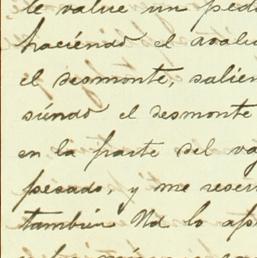 le value un pedi
haciendo el avalu
el desmonte, salien
siendo el desmonte
en la parte del va
pesado, y me reser
también Ud lo ap